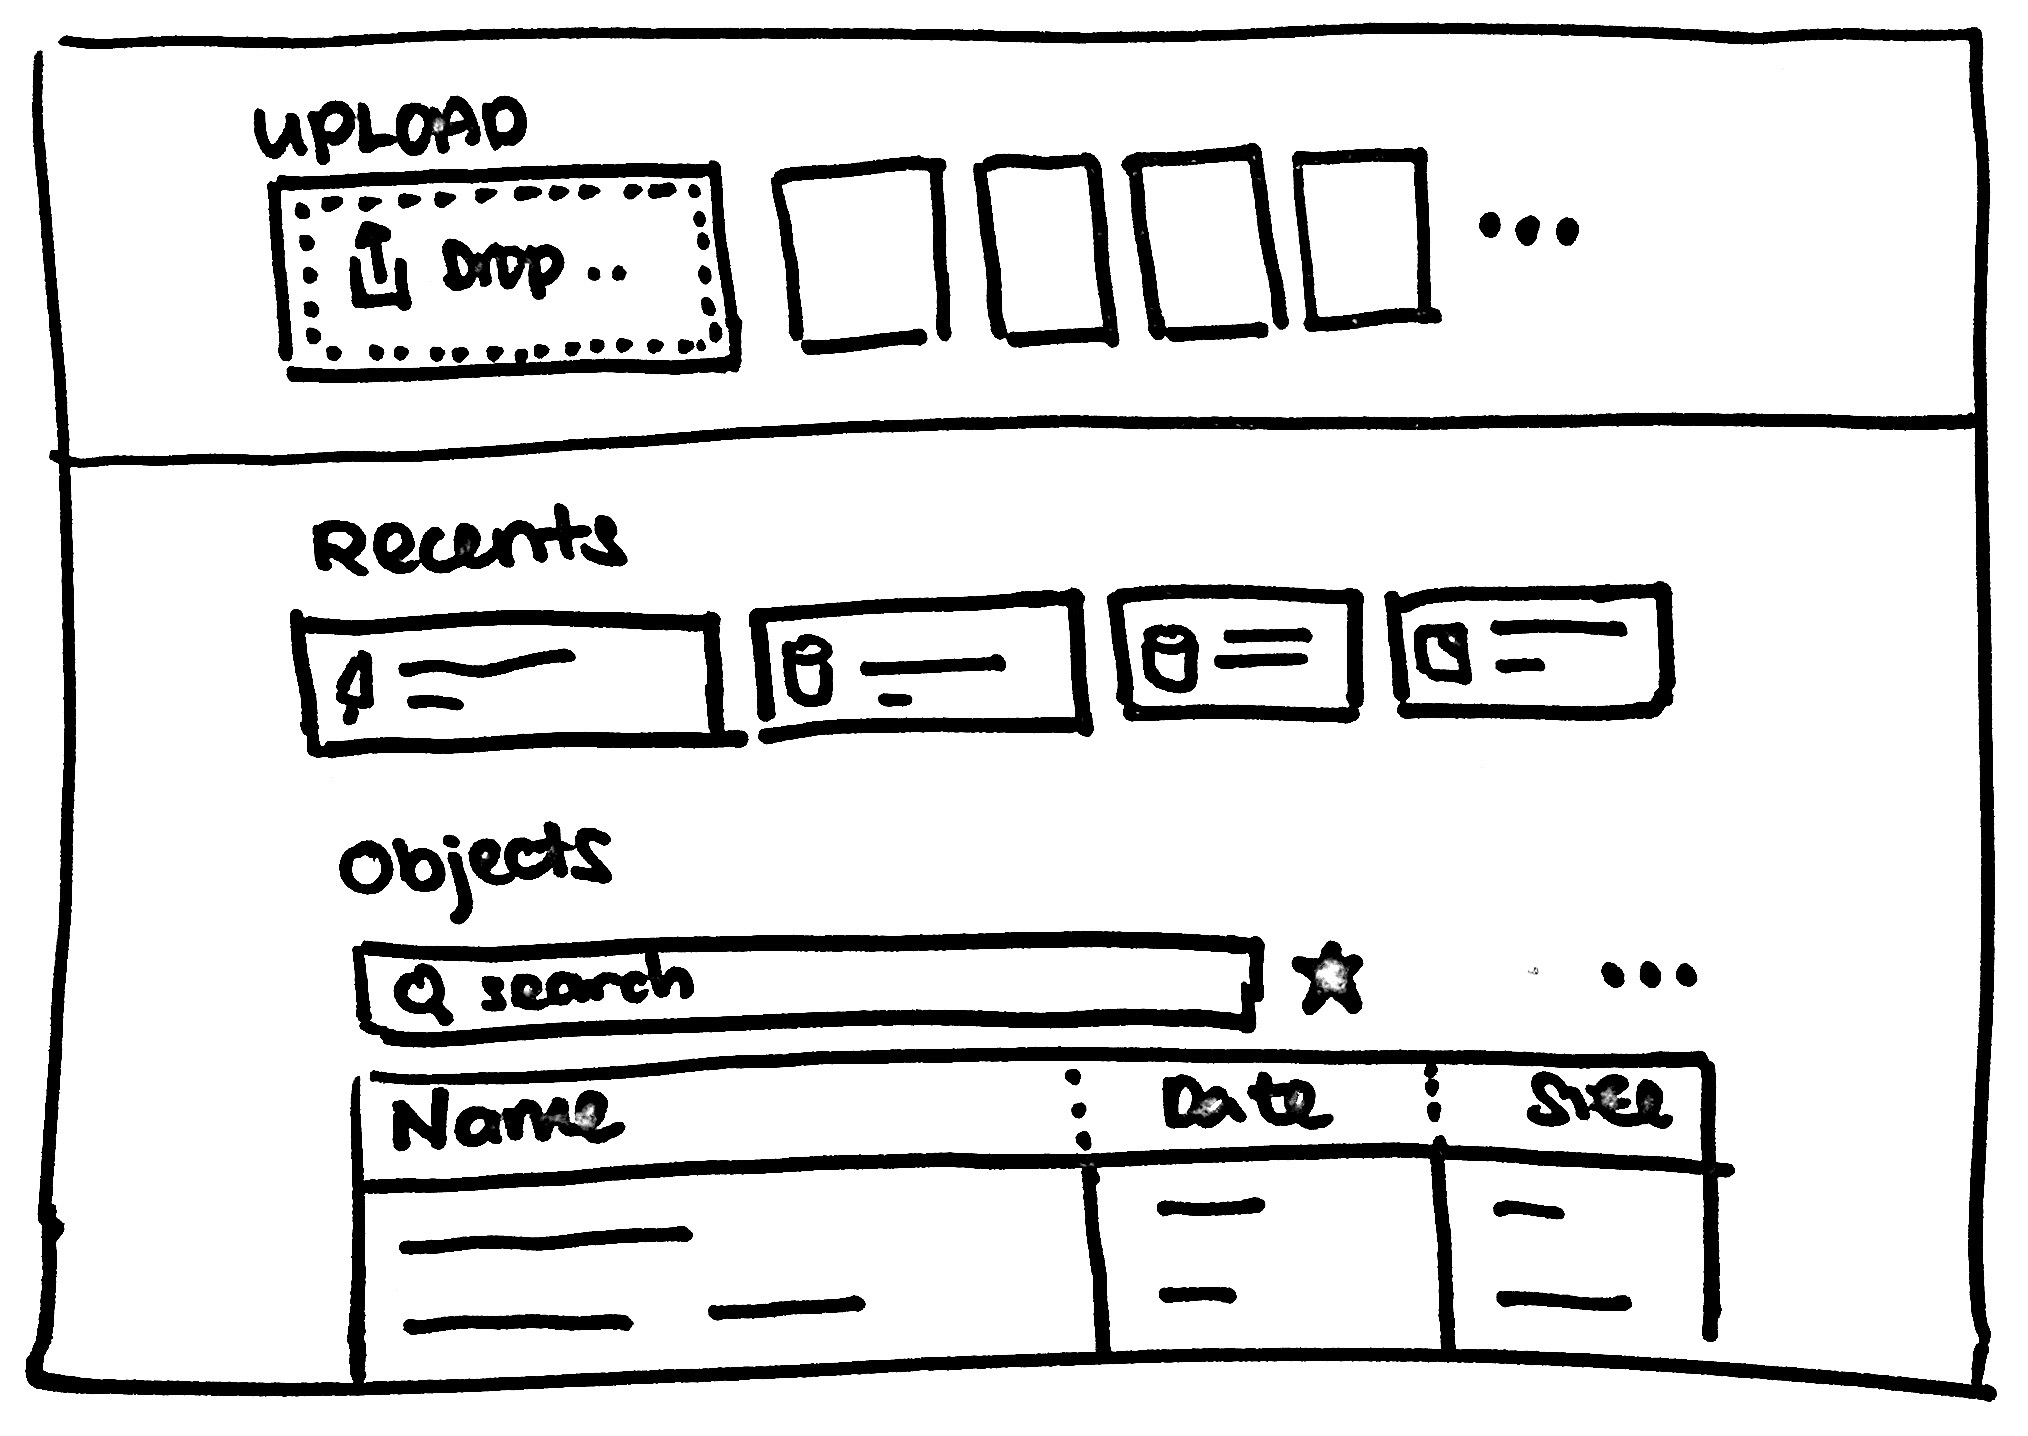 UPLOAD
Drop ..
...
Recents
Objects
search
...
Name Date Size